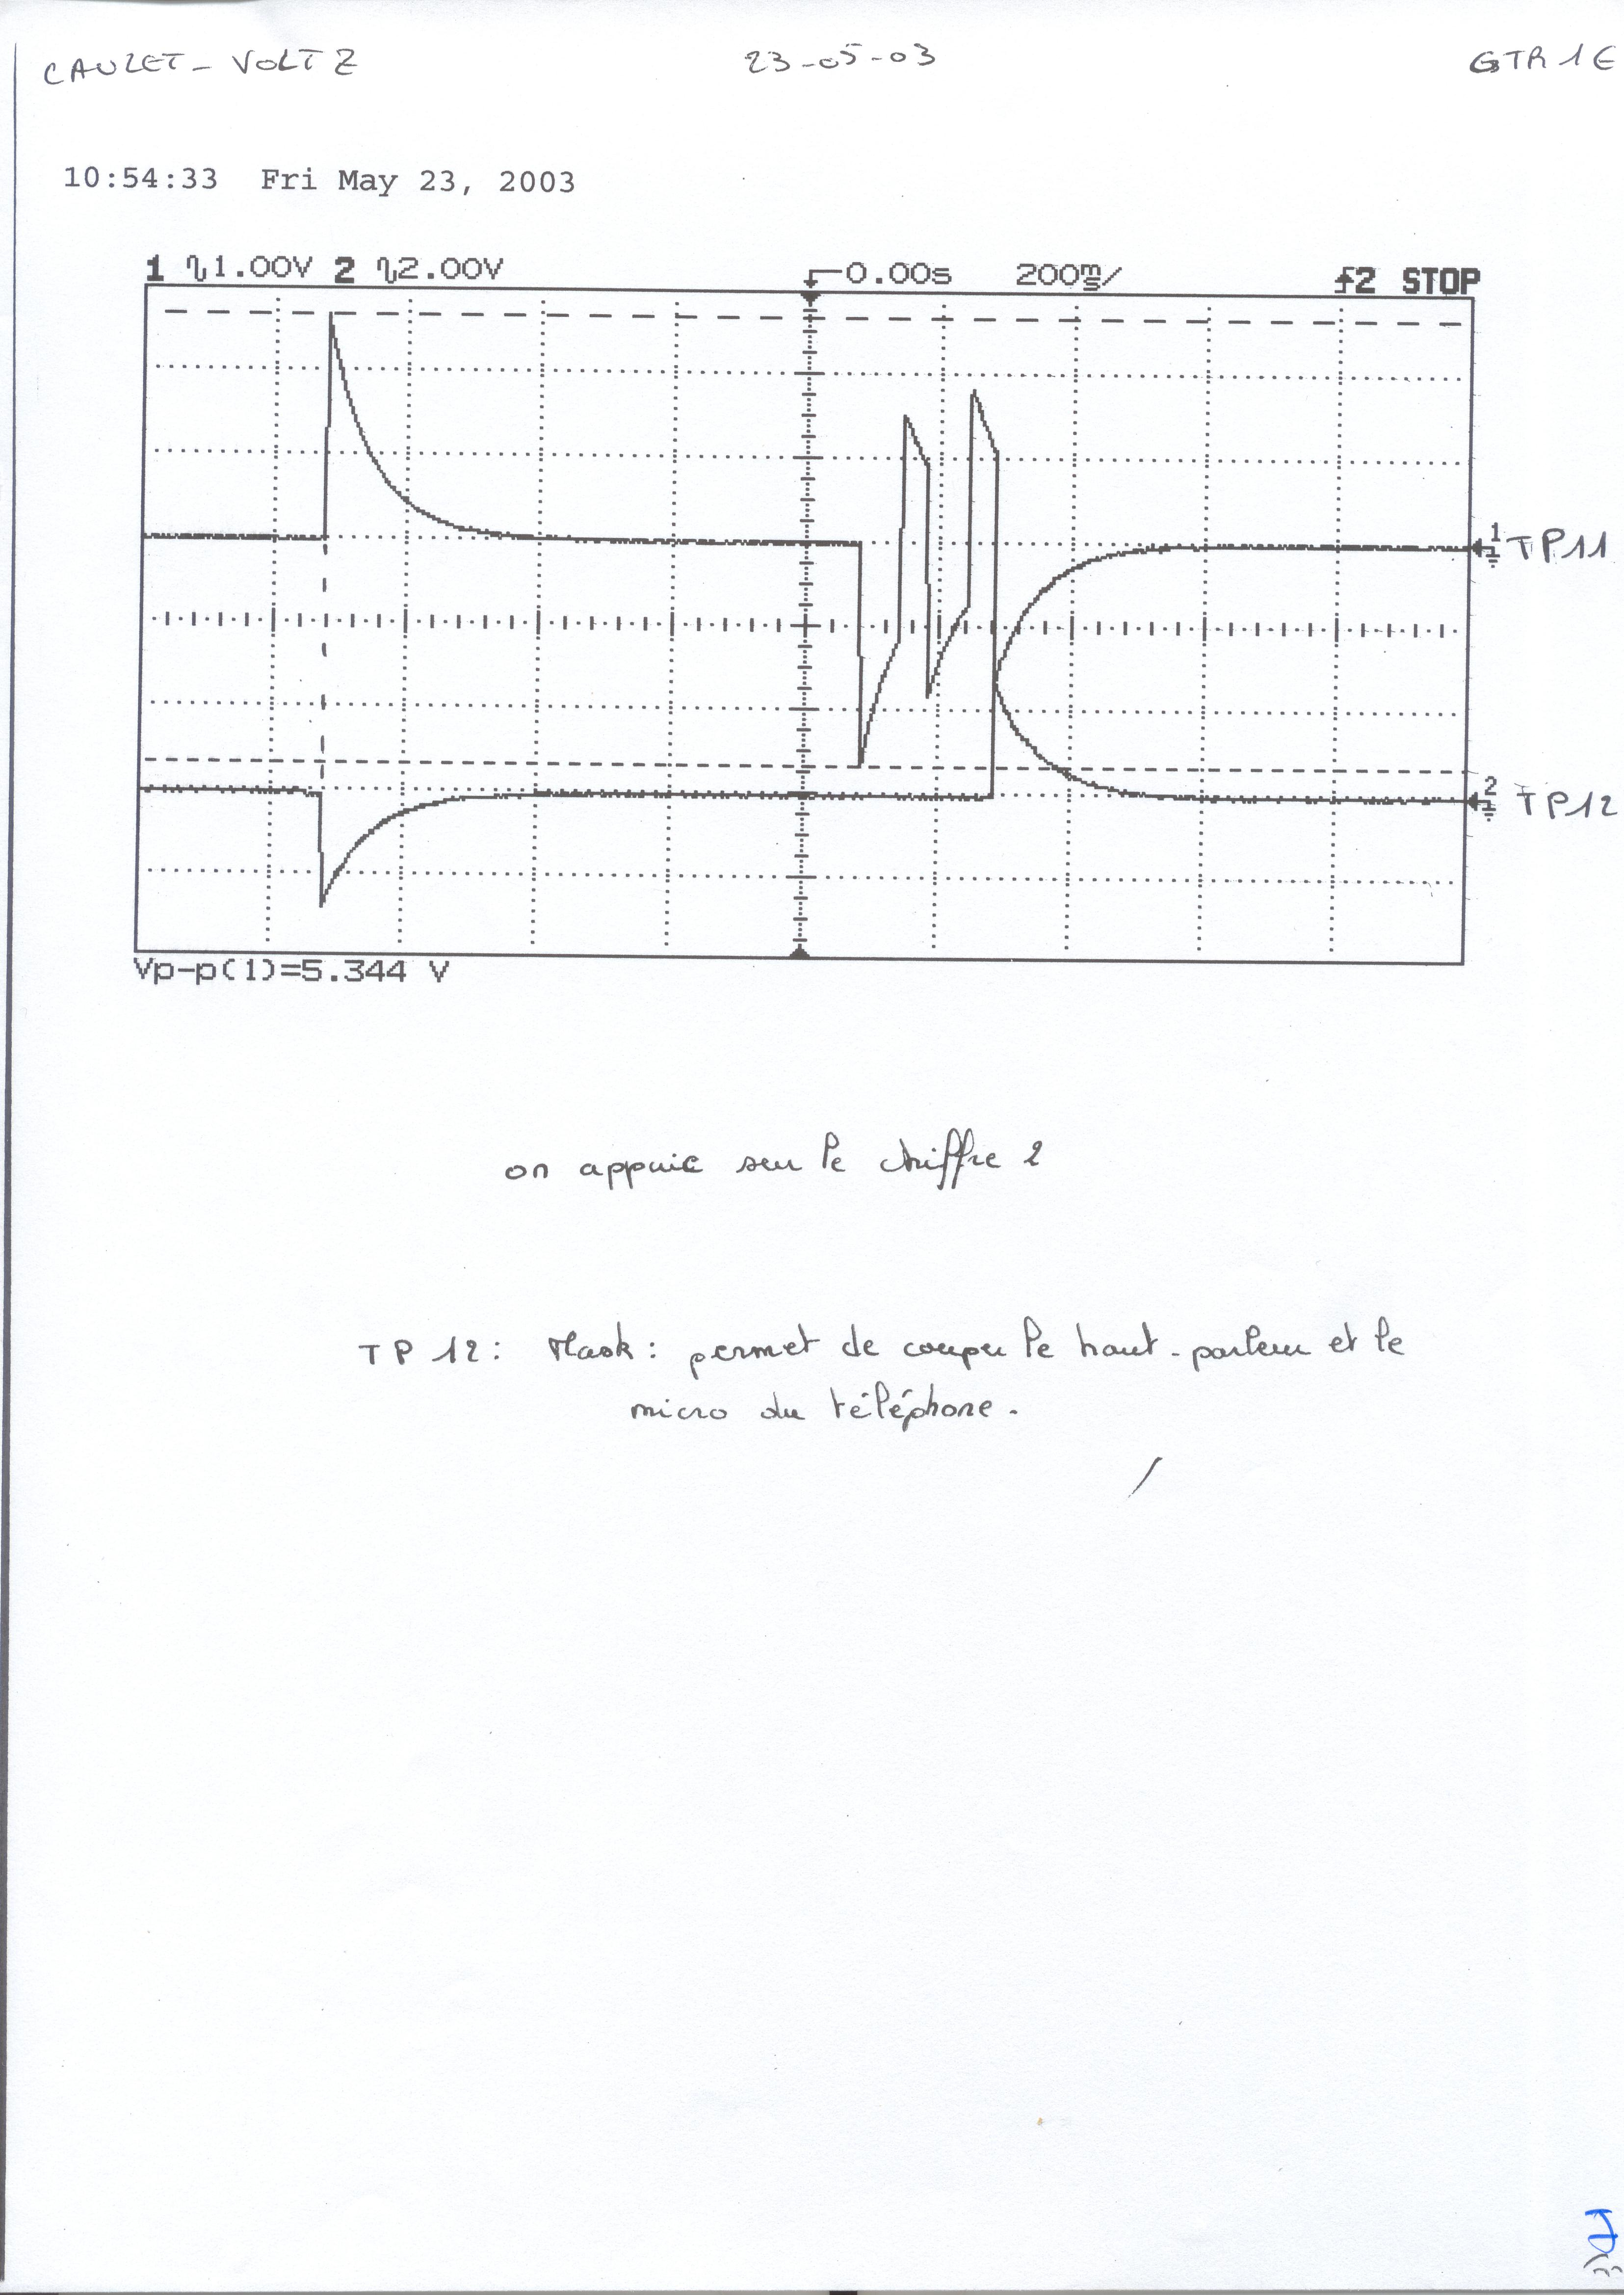 CAUZET - VOLTZ 23-05-03 GTR1E
10:54:33 Fri May 23, 2003
1 1.00V 2 2.00V 0.00s 200ms/ 2 STOP
1 TP11
2 TP12
Vp-p(1)=5.344 V
on appuie sur le chiffre 2
TP12: Mask: permet de couper le haut-parleur et le
micro du téléphone.